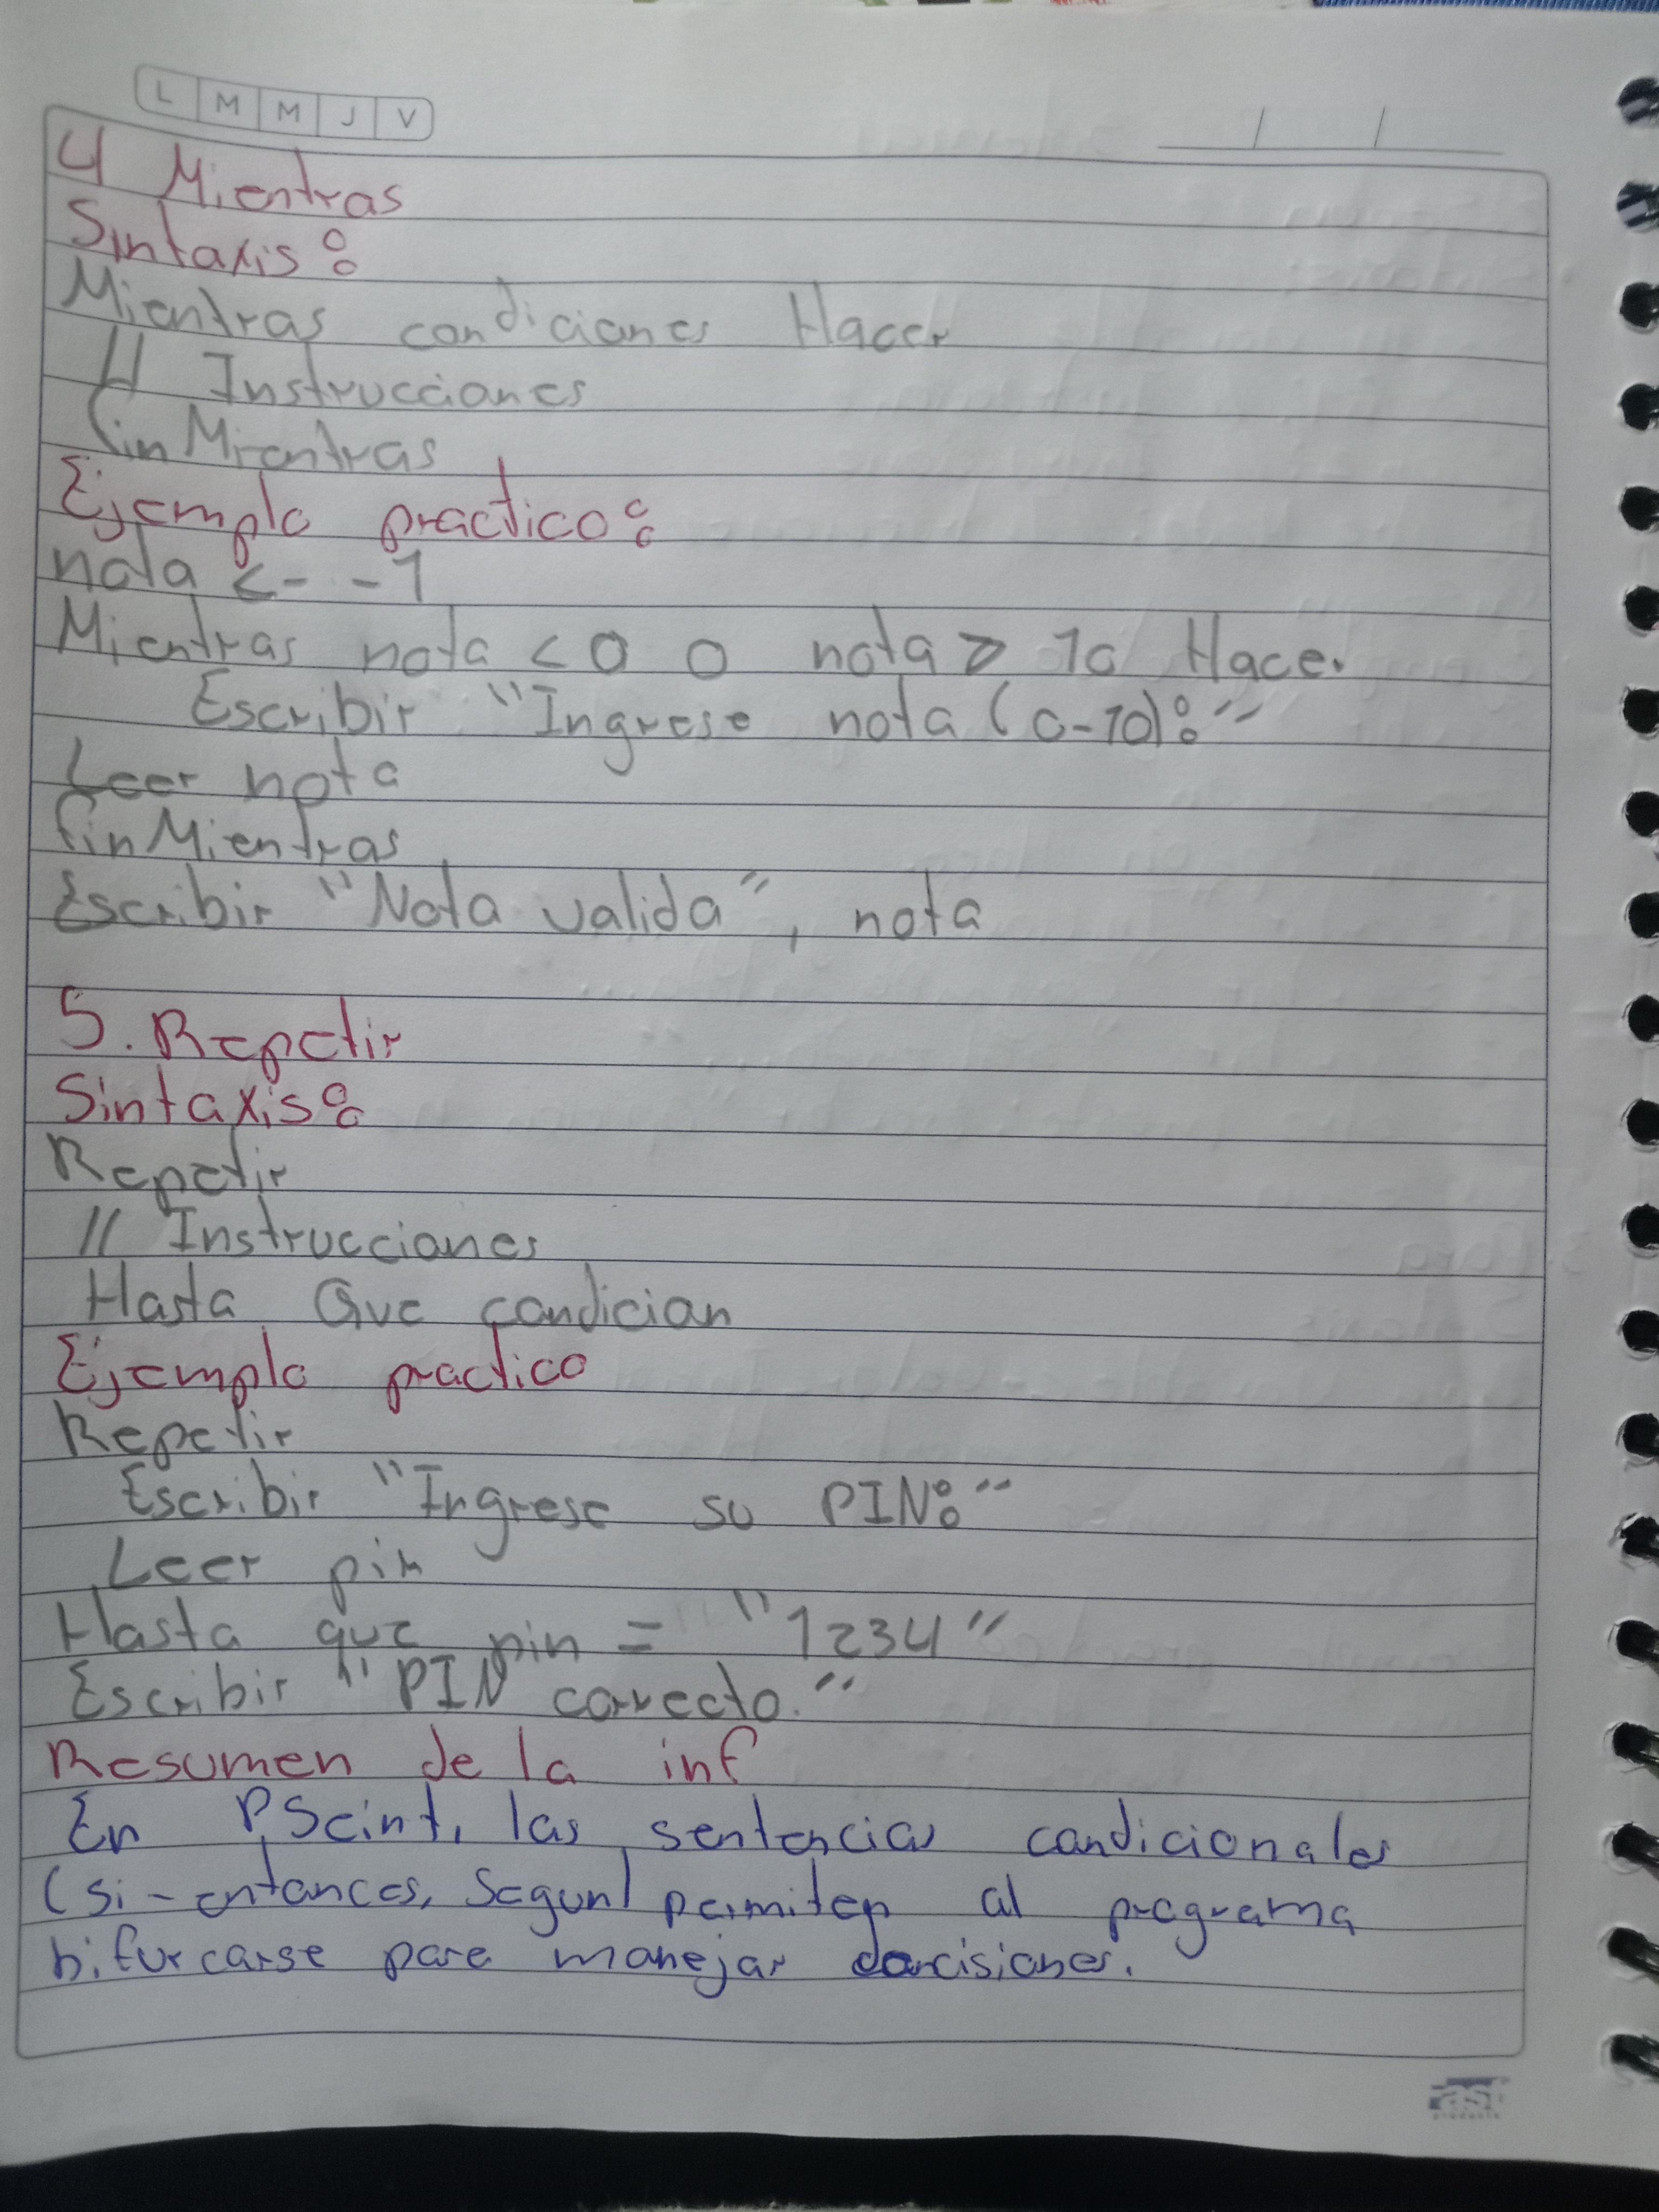 L M M J V
4 Mientras
Sintaxis:
Mientras condiciones Hacer
// Instrucciones
finMientras
Ejemplo practico:
nota <- -1
Mientras nota < 0 O nota > 10 Hacer
Escribir "Ingrese nota (0-10):"
Leer nota
finMientras
Escribir "Nota valida", nota
5. Repetir
Sintaxis:
Repetir
// Instrucciones
Hasta Que condician
Ejemplo practico
Repetir
Escribir "Ingrese su PIN:"
Leer pin
Hasta que pin = "1234"
Escribir "PIN correcto."
Resumen de la inf
En PSeint, las sentencias condicionales
(si-entonces, Segun) permiten al programa
bifurcarse para manejar
fast